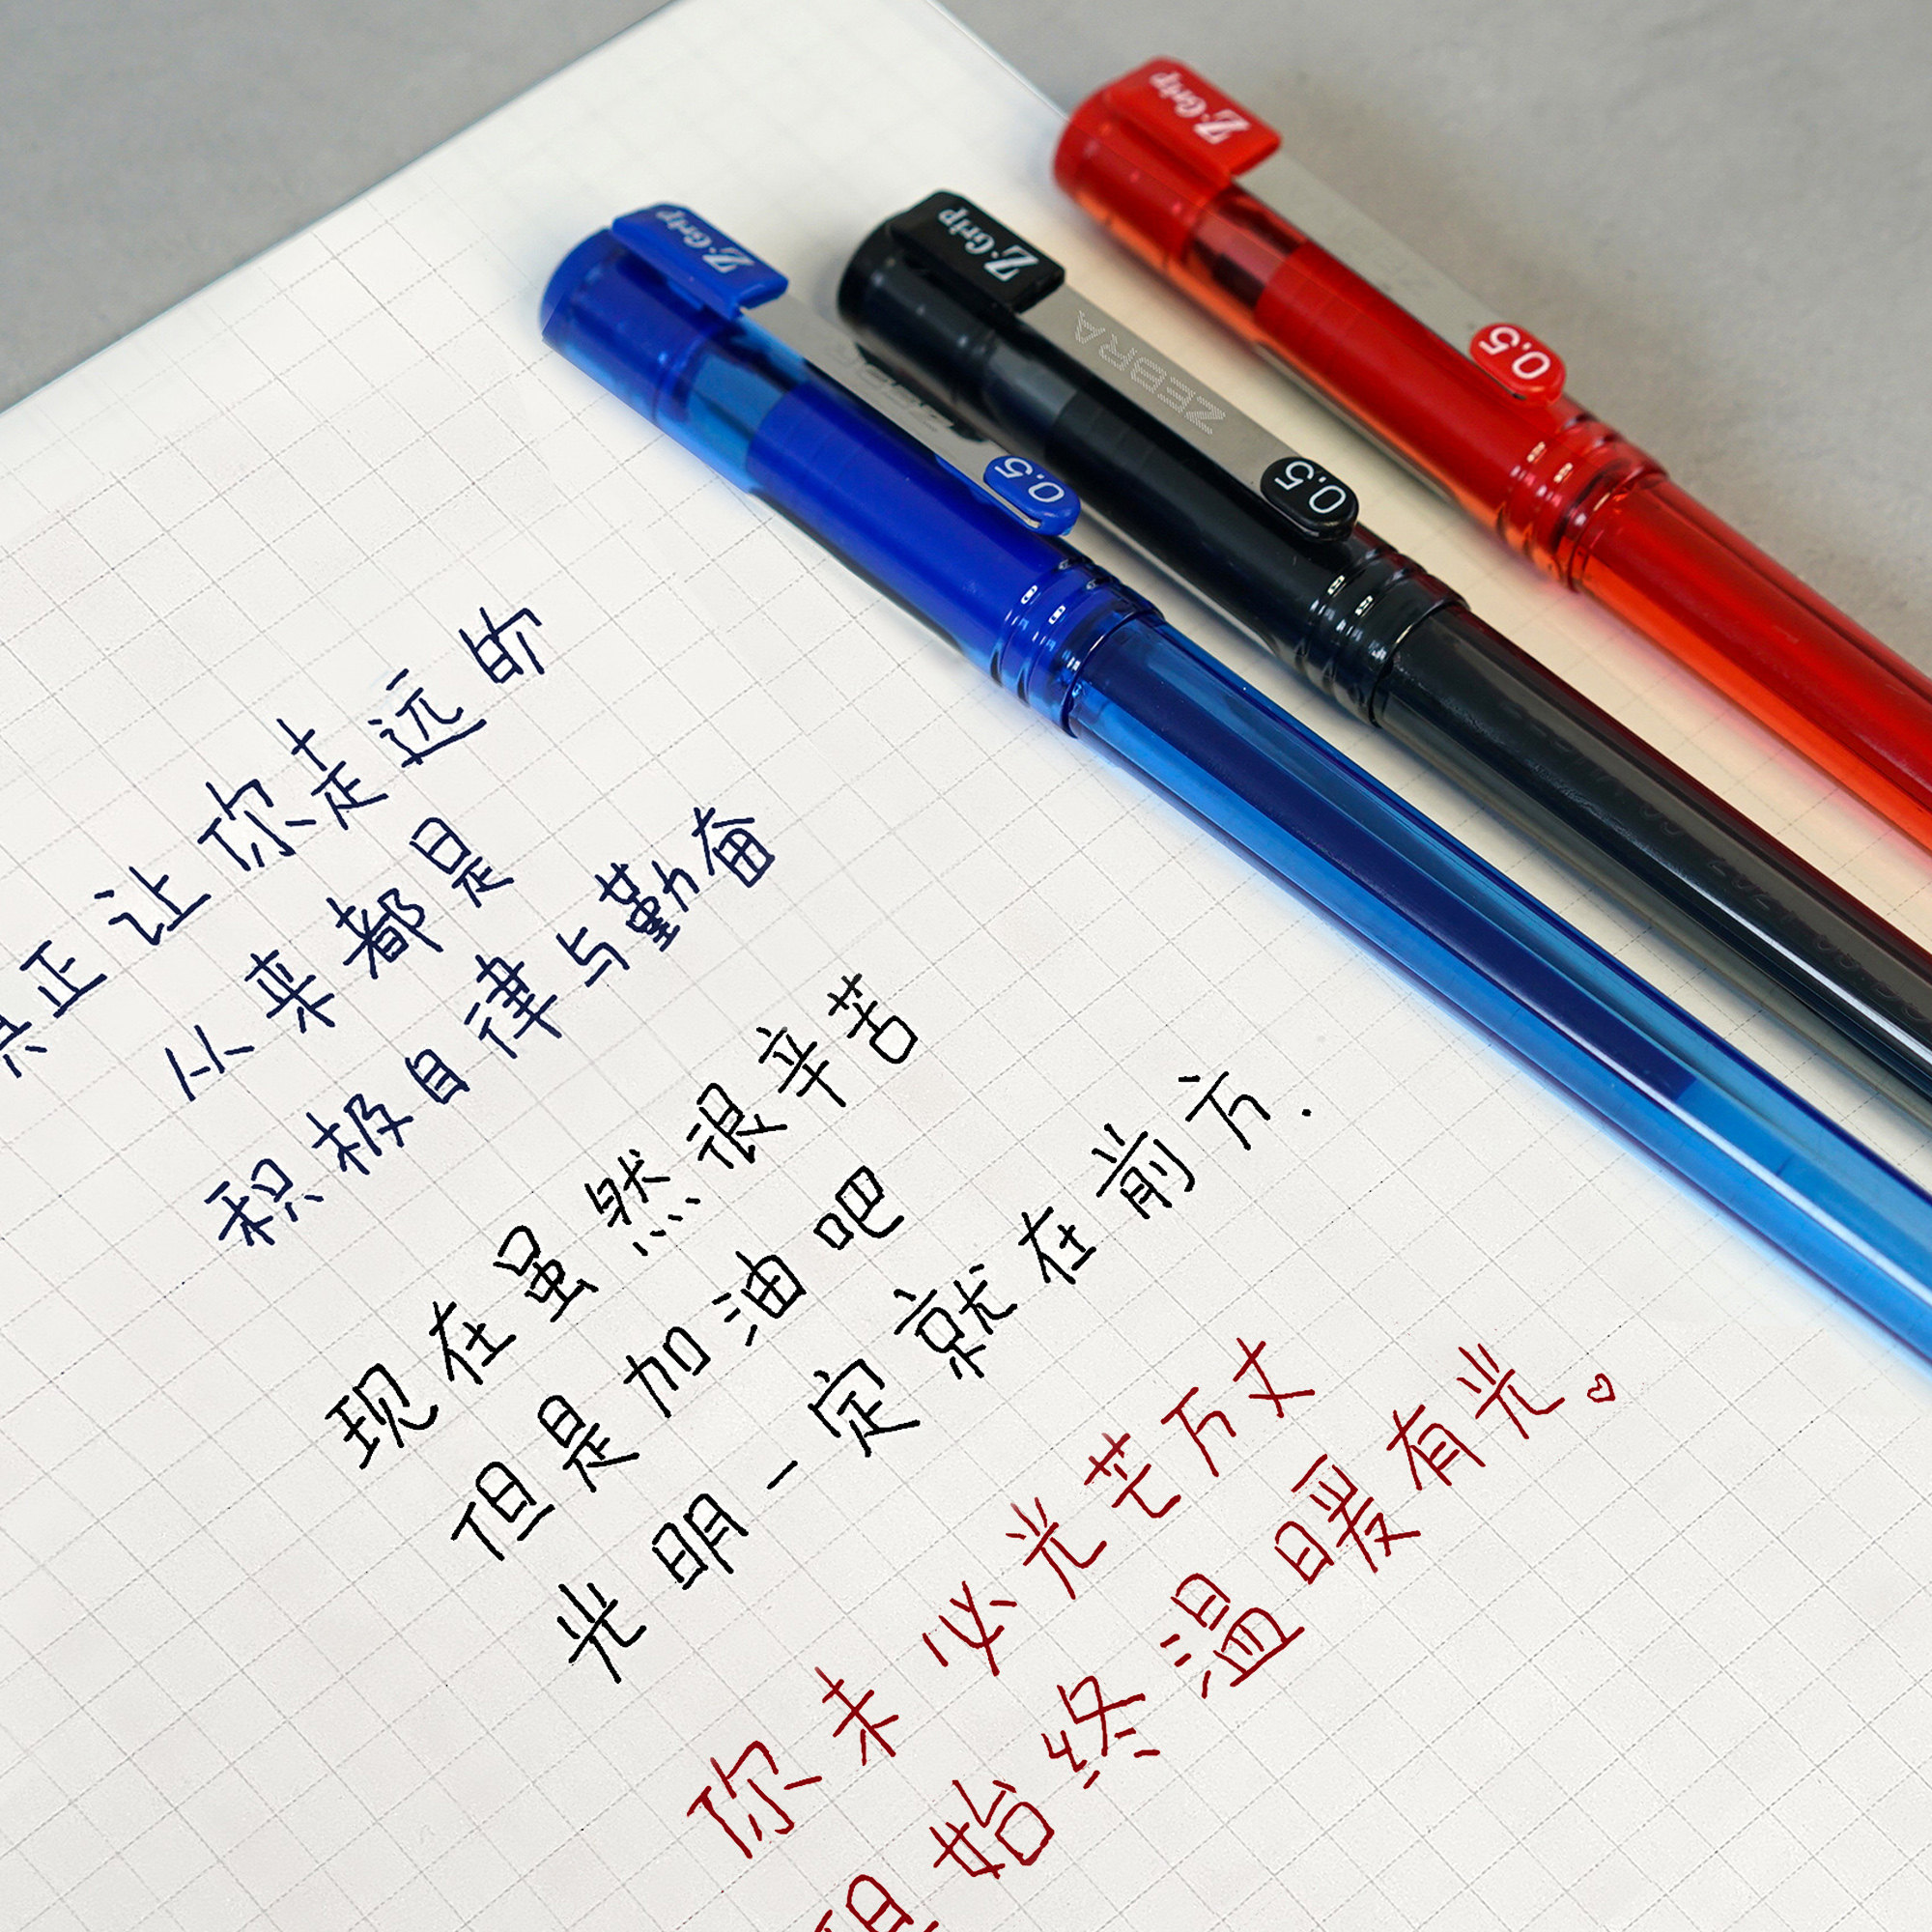 真正让你走远的
从来都是
积极自律与勤奋
现在虽然很辛苦
但是加油吧
光明一定就在前方.
你未必光芒万丈
但始终温暖有光。
Z-Grip
0.5
Z-Grip
ZEBRA
0.5
Z-Grip
0.5